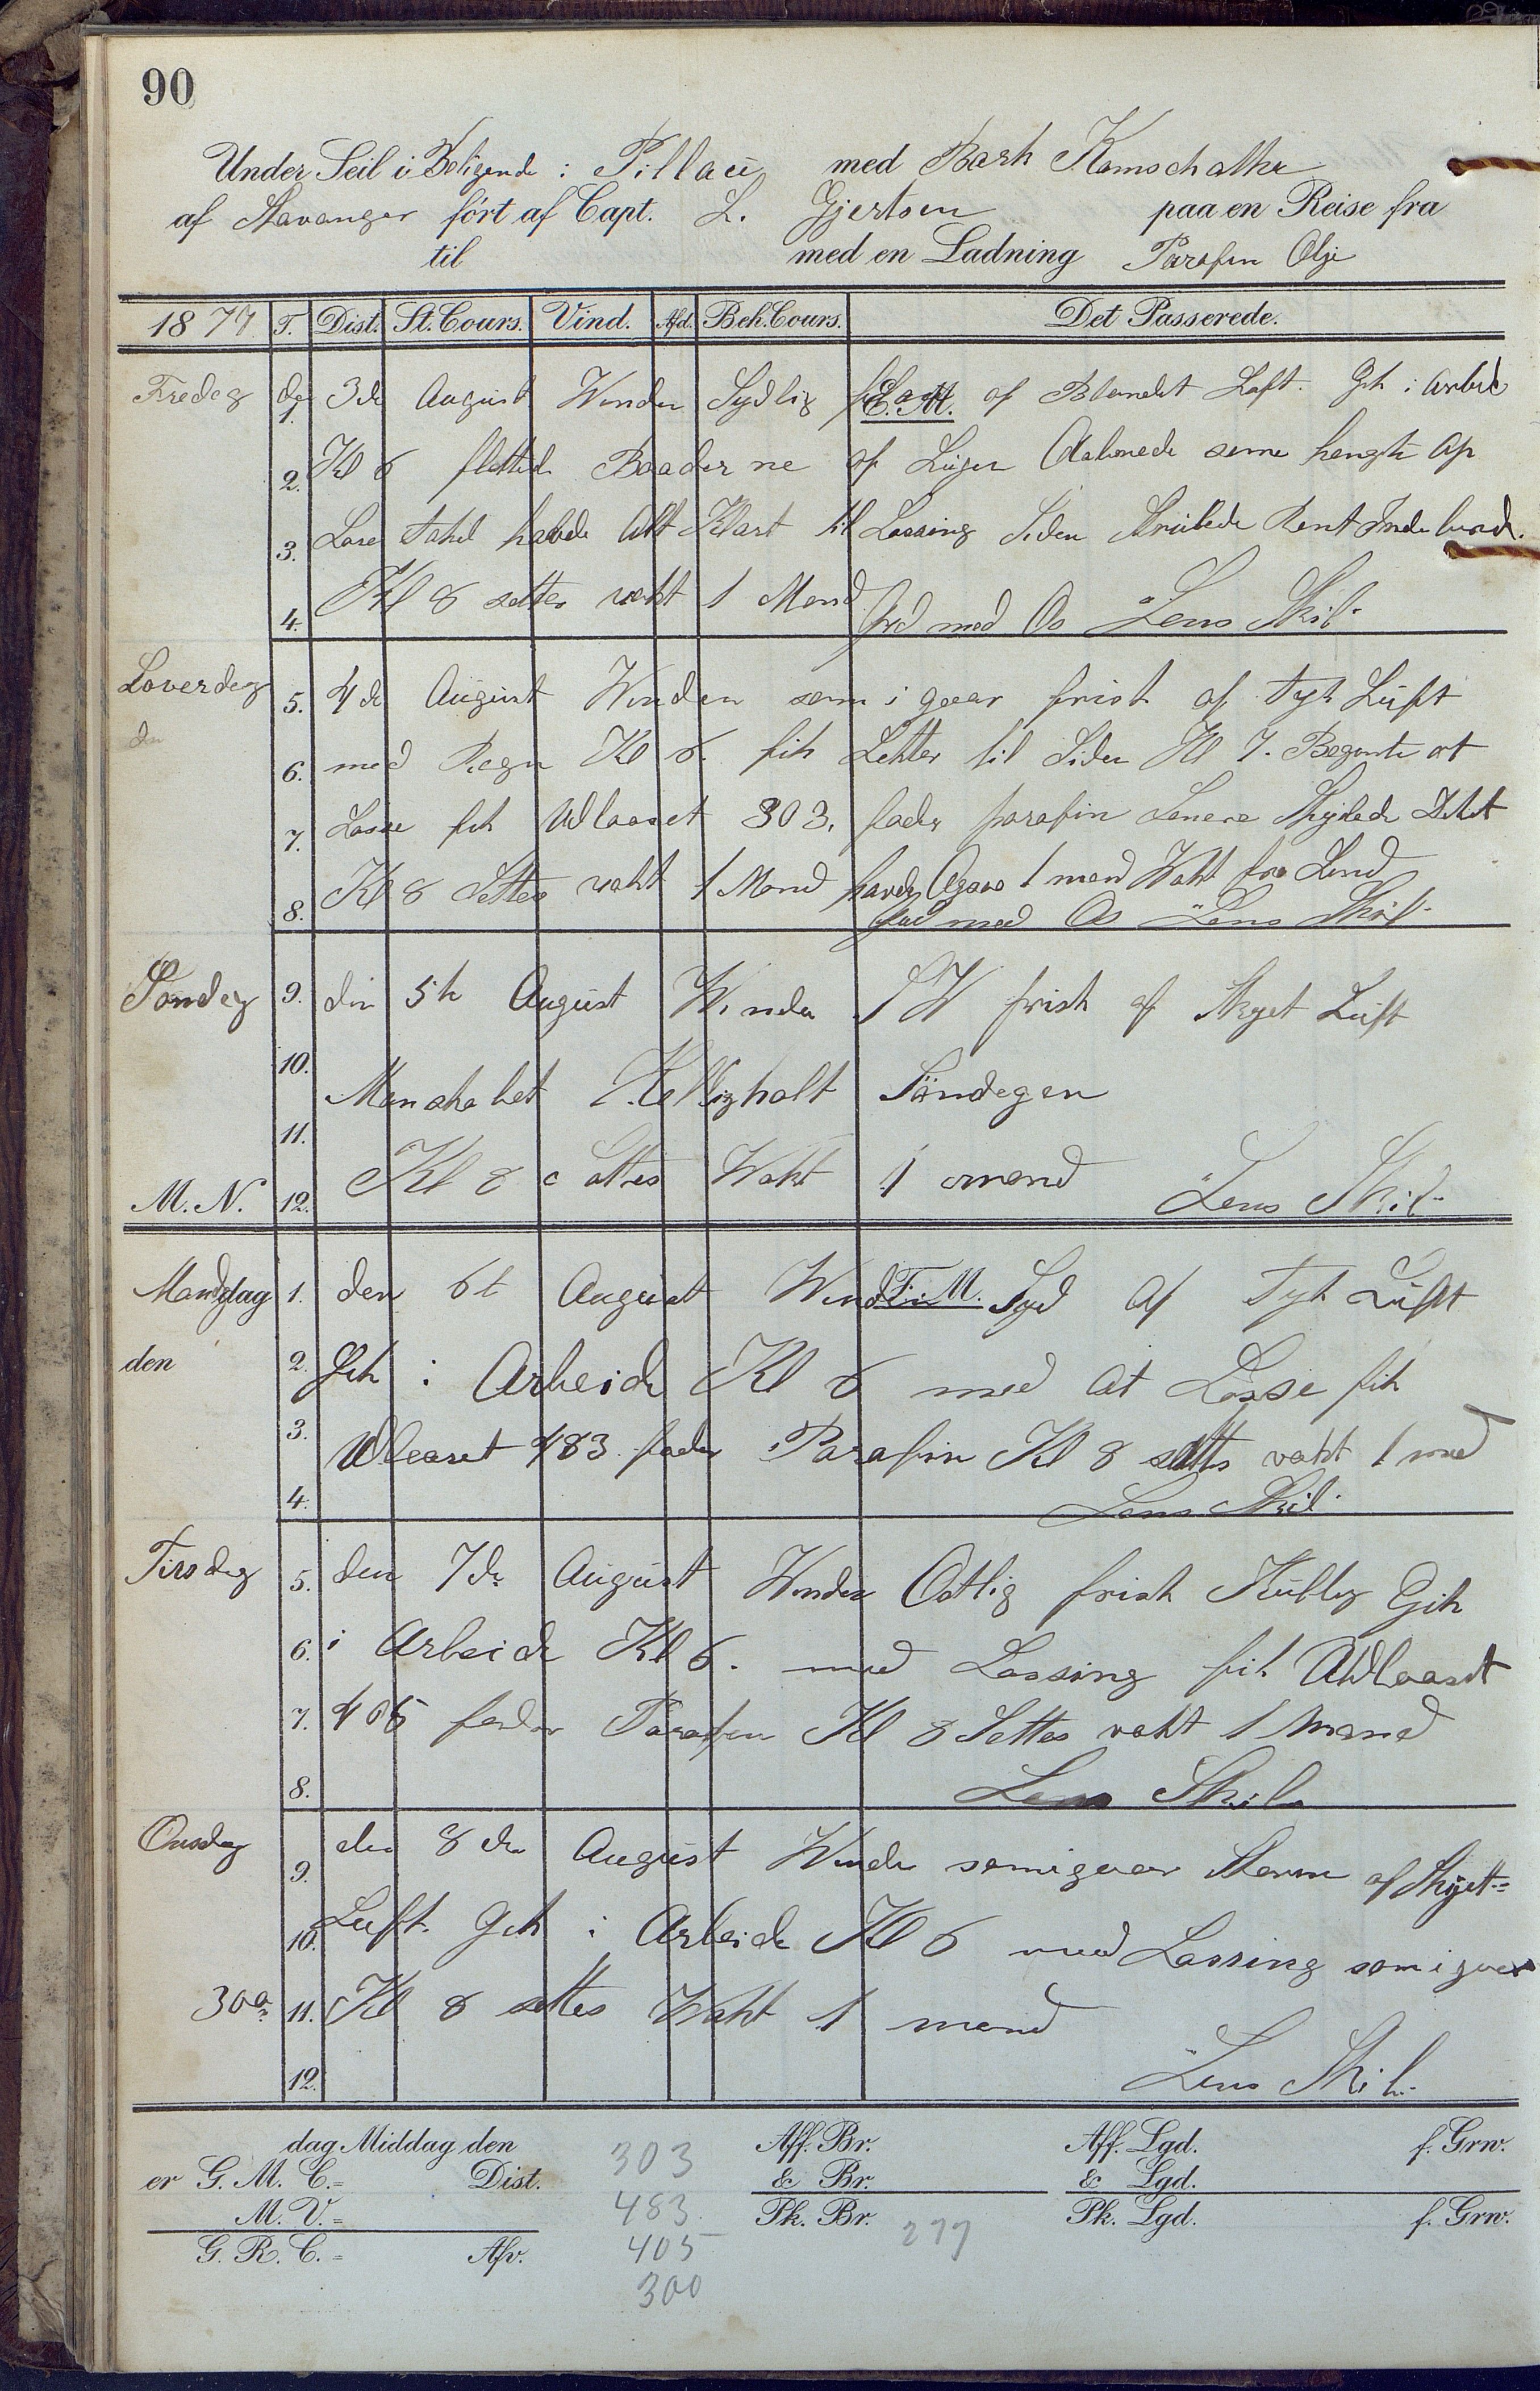 90
Under Seil i Beligende i Pillau med Bark Kamschatka
af Stavanger ført af Capt. L. Gjertsen paa en Reise fra
til med en Ladning Parafin Olje
1877 T. Dist. St. Cours. Vind. Afd. Beh. Cours. Det Passerede.
Fredag de 3de August Winden Sydlig E. M. af Blandet Luft. Gik i Arbeid
1.
2. Kl 6 flettede Baaderne af Lugen Aabnede hengte Op
3. Lose havde Alt Klart til Lossing Siden Rent
4. Kl 8 settes vakt 1 Mand Gud med Os Lens Skib
Loverdag 5. 4de August Winden som i gaar frisk af Tyk Luft
den 6. med Regn Kl 6. fik Lekter til Siden Kl 7. Begynte at
7. Losse fik Udlosset 303. fader parafin Senere Dekket
8. Kl 8 Settes vakt 1 Mand havde Ogsaa 1 mand Wakt fra Land
Gud med Os Lens Skib
Søndag 9. den 5te August Winden SW frisk af Skyet Luft
10. Manskabet Helligholt Söndagen
11.
M. N. 12. Kl 8 settes Wakt 1 mand Lens Skib
Mandag 1. den 6t August Winden F. M. Syd af Tyk Luft
den 2. Gik i Arbeide Kl 6 med at Losse fik
3. Udlosset 483 fader Parafin Kl 8 settes vakt 1 mand
4. Lens Skib
Tirsdag 5. den 7de August Winden Ostlig frisk Kulling Gik
6. i Arbeide Kl 6. med Lossing fik Udlosset
7. 405 fader Parafin Kl 8 Settes vakt 1 Mand
8. Lens Skib
Onsdag 9. den 8de August Winden somigaar Storm af Skyet
10. Luft Gik i Arbeide Kl 6 med Lossing som i gaar
300 11. Kl 8 settes Wakt 1 mand
12. Lens Skib
dag Middag den 303 Aff. Br. Aff. Lgd. f. Grw.
er G. M. C.= Dist. & Br. & Lgd.
M. V.= 483 Pk. Br. 277 Pk. Lgd. f. Grw.
G. R. C.= Afv. 405
300